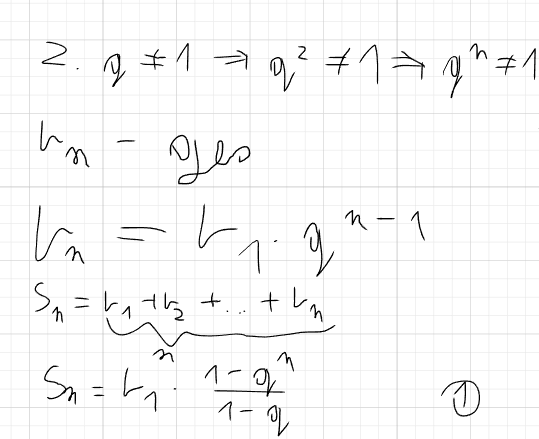 2. q ≠ 1 ⇒ q² ≠ 1 ⇒ qⁿ ≠ 1
bₙ -
bₙ = b₁ · qⁿ⁻¹
Sₙ = b₁ + b₂ + ... + bₙ
n
Sₙ = b₁ · (1 - qⁿ)/(1 - q) ①